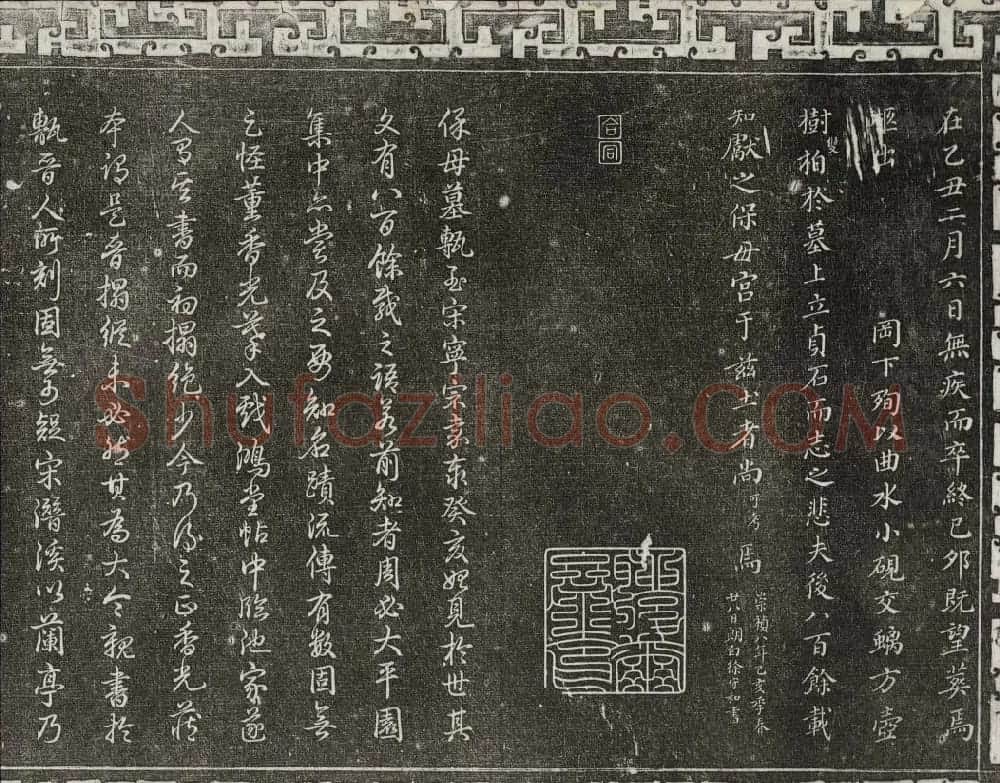 在乙丑二月六日無疾而卒終已夘既望葬焉
岡下殉以曲水小硯交螭方壺
樹雙柏於墓上立貞石而志之悲夫後八百餘載
知獻之保母宮于茲土者尚可考焉
崇禎八年乙亥季春
廿八日
合同
保母墓甎至宋寧宗嘉泰癸亥始見於世其
文有八百餘載之語若前知者周必大平園
集中亦嘗及之要知名蹟流傳有數固無
之怪董香光摹入戲鴻堂帖中臨池家遂
人習其書而初搨絶少今乃得之正香光藏
本詞是晉搨縱未必然其為大令親書於
甎晉人所刻固無可疑宋潛溪以蘭亭乃
Shufaziliao.COM